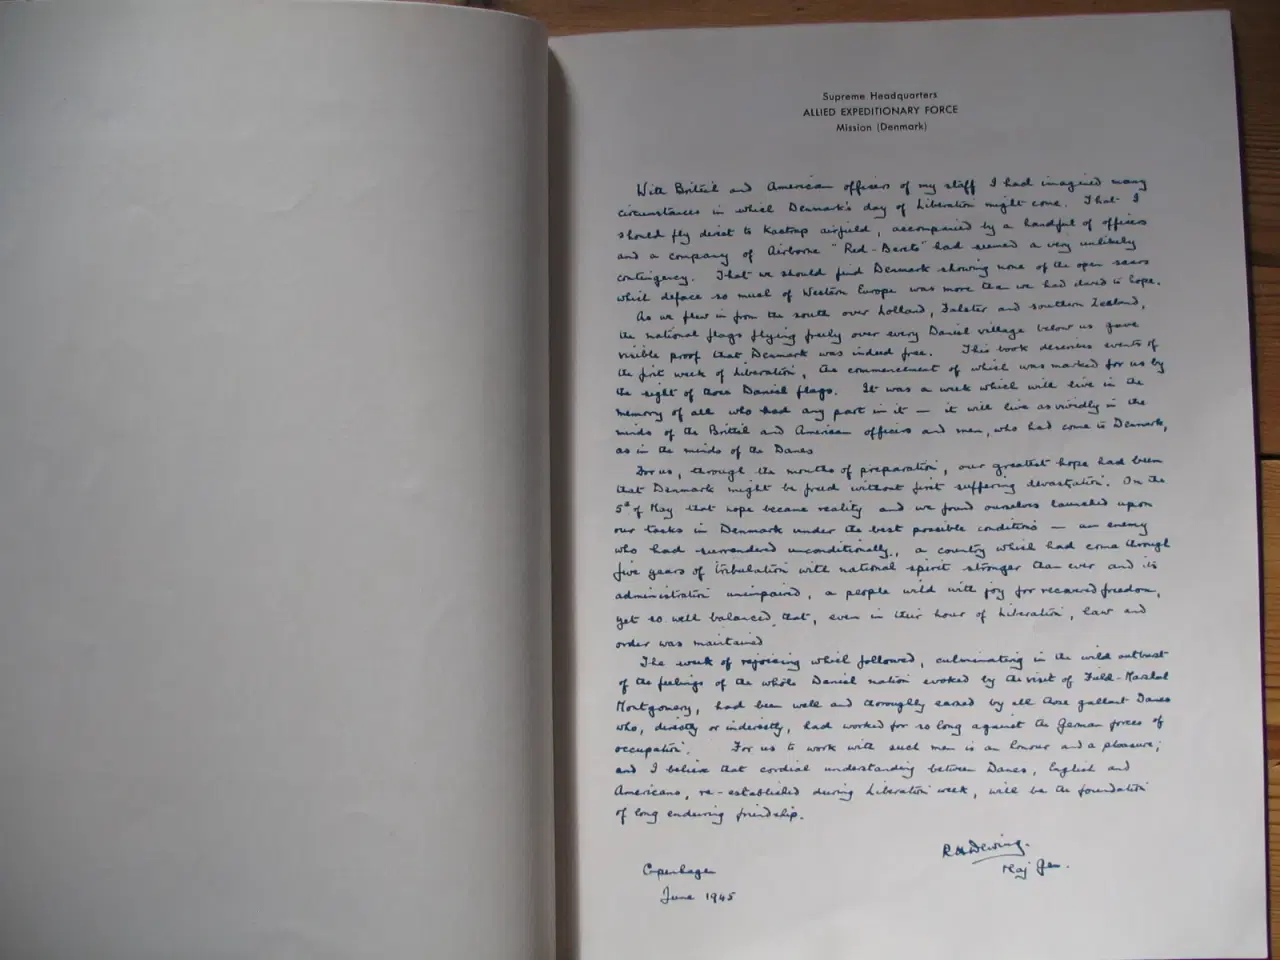 Supreme Headquarters
ALLIED EXPEDITIONARY FORCE
Mission (Denmark)
With British and American officers of my staff I had imagined many
circumstances in which Denmark's day of Liberation might come. That I
should fly direct to Kastrup airfield, accompanied by a handful of officers
and a company of Airborne "Red-Berets" had seemed a very unlikely
contingency. That we should find Denmark showing none of the open scars
which deface so much of Western Europe was more than we had dared to hope.
As we flew in from the south over Lolland, Falster and southern Zealand,
the national flags flying freely over every Danish village below us gave
visible proof that Denmark was indeed free. This book describes events of
the first week of Liberation, the commencement of which was marked for us by
the sight of those Danish flags. It was a week which will live in the
memory of all who had any part in it — it will live as vividly in the
minds of the British and American officers and men, who had come to Denmark,
as in the minds of the Danes
For us, through the months of preparation, our greatest hope had been
that Denmark might be freed without first suffering devastation. On the
5th of May that hope became reality and we found ourselves launched upon
our tasks in Denmark under the best possible conditions — an enemy
who had surrendered unconditionally, a country which had come through
five years of tribulation with national spirit stronger than ever and its
administration unimpaired, a people wild with joy for recovered freedom,
yet so well balanced that, even in their hour of Liberation, law and
order was maintained
The week of rejoicing which followed, culminating in the wild outburst
of the feelings of the whole Danish nation evoked by the visit of Field-Marshal
Montgomery, had been well and thoroughly earned by all those gallant Danes
who, directly or indirectly, had worked for so long against the German forces of
occupation. For us to work with such men is an honour and a pleasure;
and I believe that cordial understanding between Danes, English and
Americans, re-established during Liberation week, will be the foundation
of long enduring friendship.
R H Dewing.
Maj Gen.
Copenhagen
June 1945